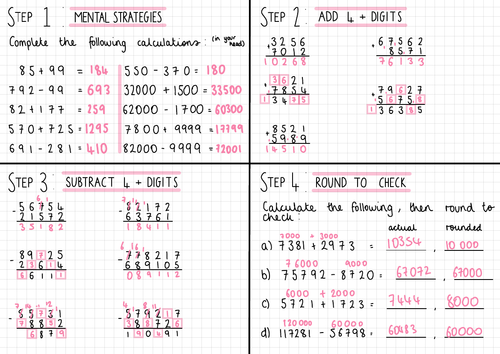 STEP 1 : MENTAL STRATEGIES
Complete the following calculations: (in your head)
85 + 99 = 184
792 - 99 = 693
82 + 177 = 259
570 + 725 = 1295
691 - 281 = 410
550 - 370 = 180
32000 + 1500 = 33500
62000 - 1700 = 60300
7800 + 9999 = 17799
82000 - 9999 = 72001
STEP 2 : ADD 4 + DIGITS
3256
+ 7012
10268
67562
+ 8571
76133
+ 7854
13475
79627
+ 56758
136385
8521
+ 5989
14510
STEP 3 SUBTRACT 4 + DIGITS
56754
- 21572
35182
82172
- 63761
18411
89725
- 23614
66111
778217
- 689105
089112
- 78852
6879
579217
- 388726
190491
STEP 4 ROUND TO CHECK
Calculate the following, then round to
check:
actual rounded
7000 + 3000
a) 7381 + 2973 = 10354, 10 000
76000 9000
b) 75792 - 8720 = 67072, 67000
6000 + 2000
c) 5721 + 1723 = 7444, 8000
120 000 60 000
d) 117281 - 56798 = 60483, 60000